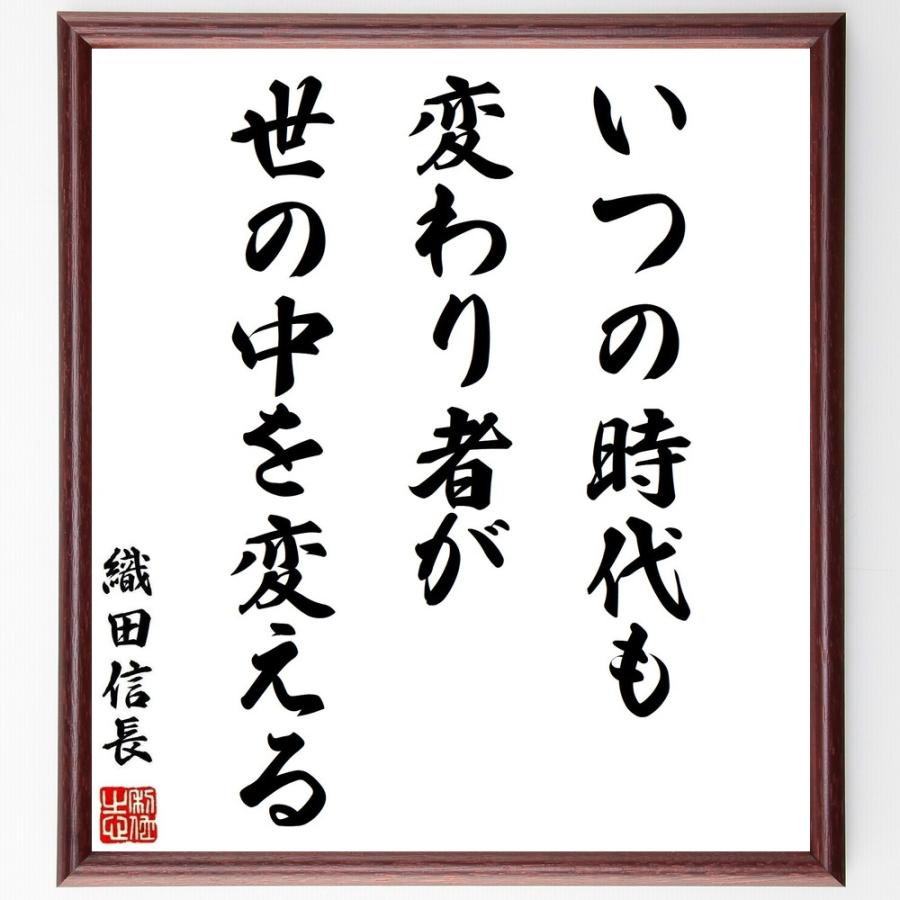 いつの時代も
変わり者が
世の中を変える
織田信長